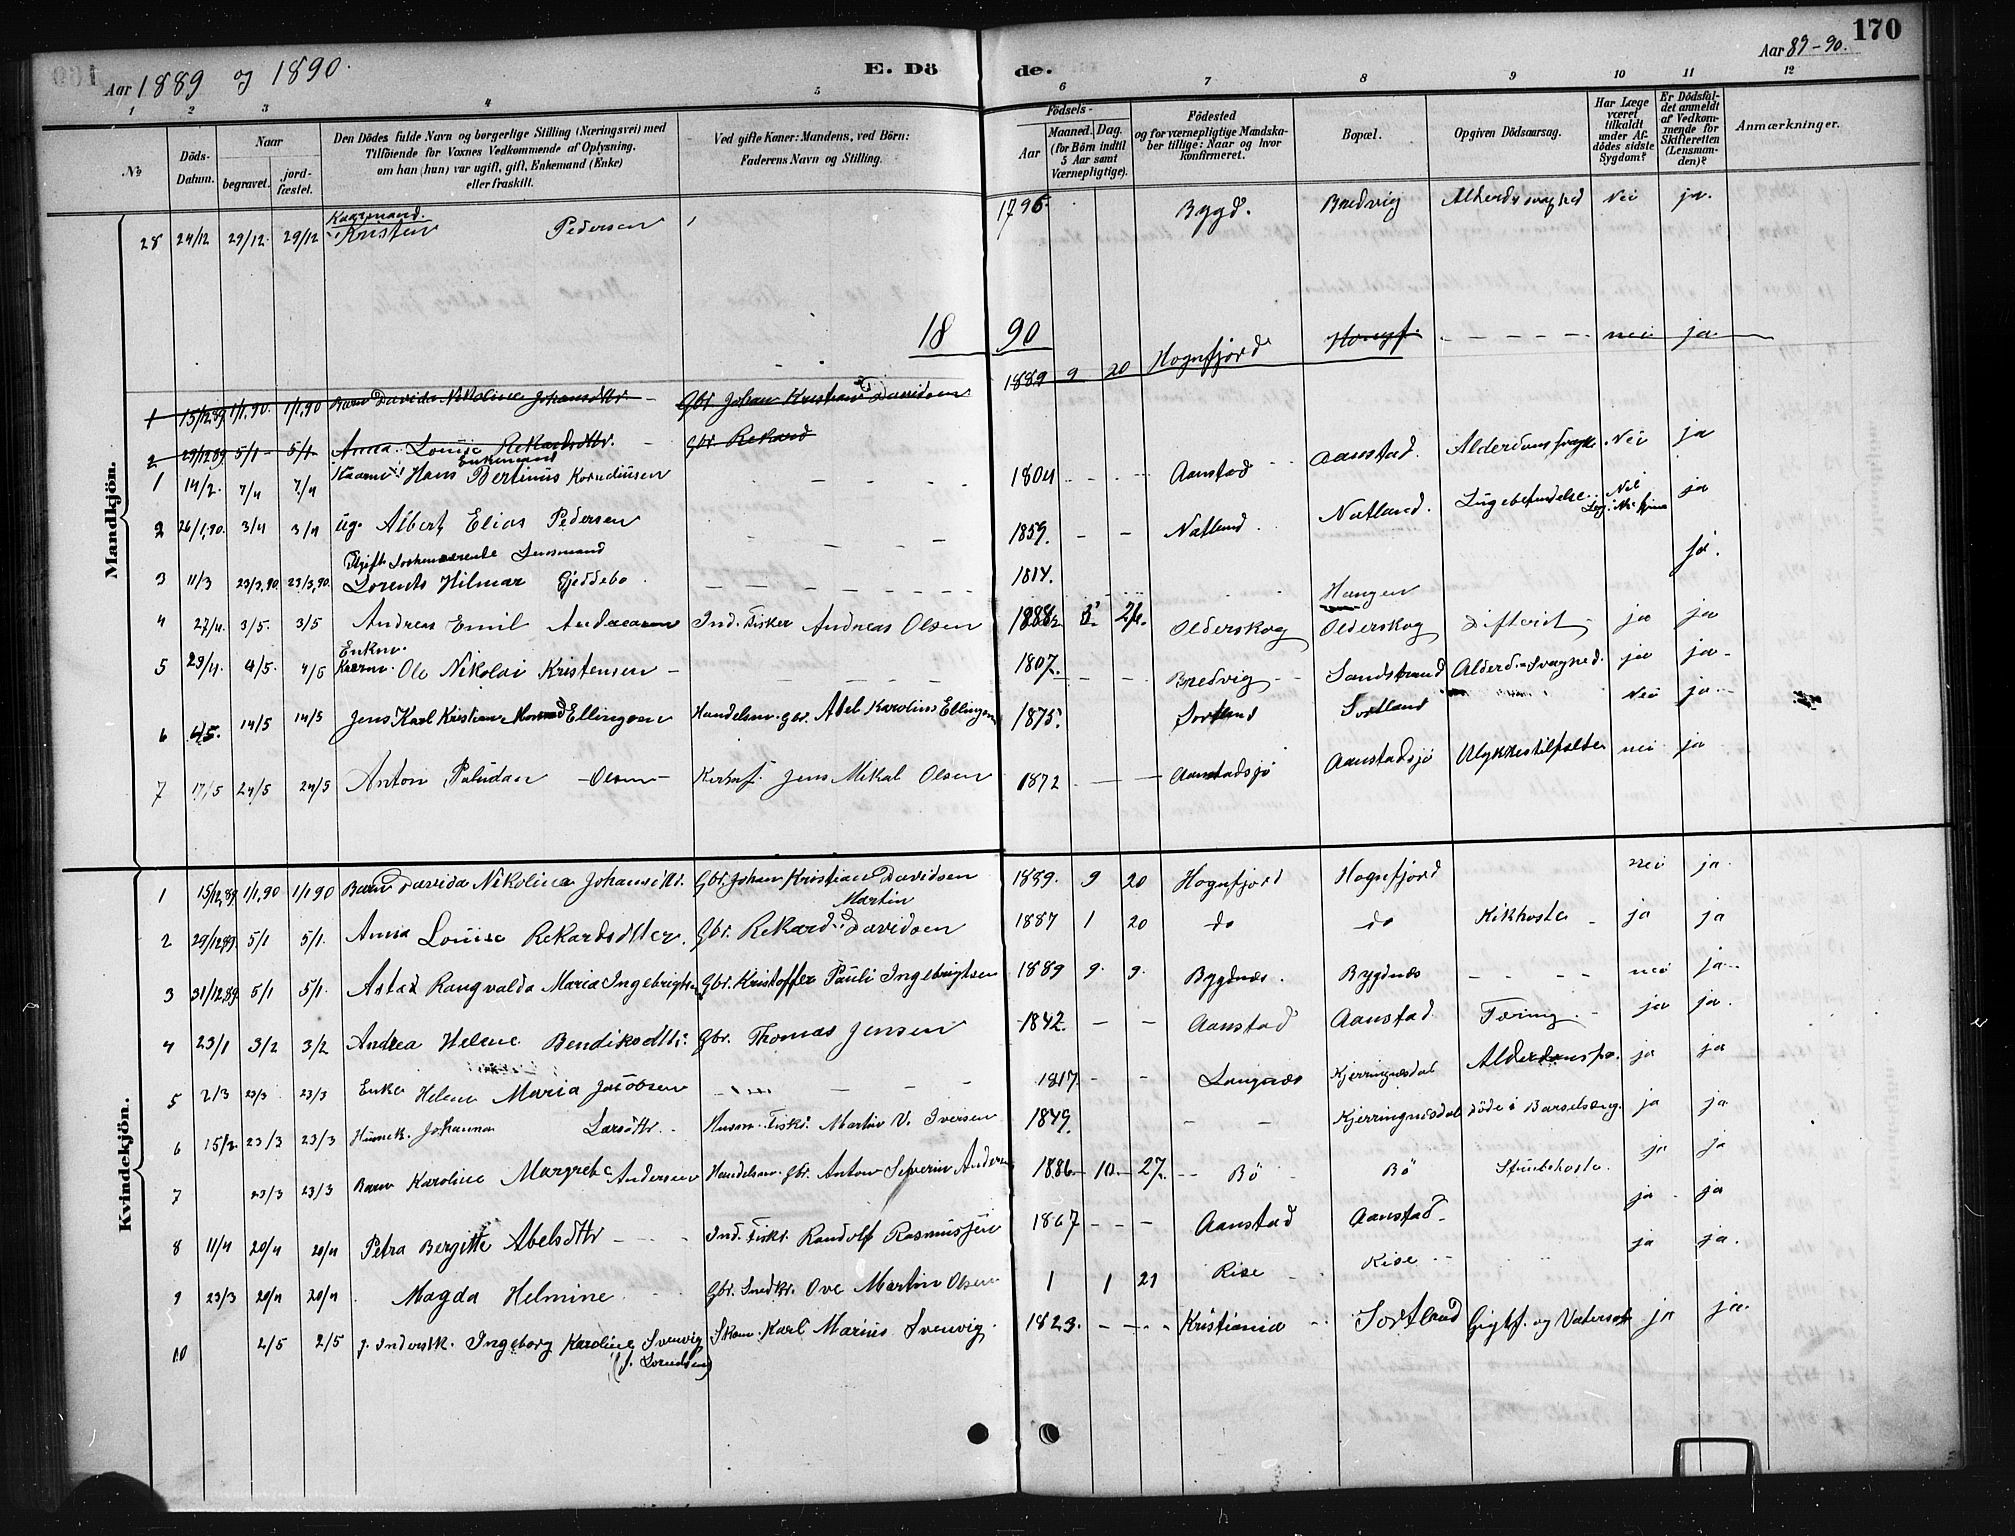 Aar 1889 og 1890.
E. Döde.
Aar 89-90.
170
1 2 3 4 5 6 7 8 9 10 11 12
No
Döds-Datum.
Naar
begravet.
jord-fæstet.
Den Dödes fulde Navn og borgerlige Stilling (Næringsvei) med Tilföiende for Voxnes Vedkommende af Oplysning, om han (hun) var ugift, gift, Enkemand (Enke) eller fraskilt.
Ved gifte Koner: Mandens, ved Börn: Faderens Navn og Stilling.
Födsels-
Aar
Maaned. Dag.
(for Börn indtil 5 Aar samt Værnepligtige).
Födested og for værnepligtige Mandskaber tillige: Naar og hvor konfirmeret.
Bopæl.
Opgiven Dödsaarsag.
Har Læge været tilkaldt under Afdödes sidste Sygdom?
Er Dödsfaldet anmeldt af Vedkommende for Skifteretten (Lensmanden)?
Anmærkninger.
Mandkjön.
28 24/12 29/12 29/12 Kaarmand. Kristen Pedersen 1796 Bygd. Bredvig Alderdsvaghed Nei ja.
1890
1 15/12 89 1/1,90 1/1,90 Barn Davida Nikoline Johansdtr Gbr Johan Kristian Davidsen 1889 9 20 Hognfjord Hognf. nei ja
2 29/12 89 5/1 5/1 Anna Louise Rekardsdtr. Gbr. Rekard
1 14/2 7/4 7/4 Kaarm. Enkemand Hans Bertinus Kornelius­sen 1804 Aanstad Aanstad. Alderdomssvagh. Nei ja
2 26/1,90. 3/4 3/4 Ug. Albert Elias Pedersen 1859. Natland Natland. Nei ja
3 11/3 23/3,90 23/3,90. Gift Lensmand Lorents Hilmar Gjeddebo 1814. ja.
4 27/4. 3/5. 3/5 Andreas Emil Andreasen Ind. Fisker Andreas Olsen 1888 3 26. Olderskog Haugen Olderskog Difterit ja ja
5 29/4 4/5. 4/5 Enkm. Kaarm. Ole Nikolai Kristensen 1807. Bredvig Sandstrand Alderd. Svaghed. ja ja
6 6/5. 14/5 14/5 Jens Karl Kristian Ellingsen Handelsm. Gbr. Abel Karolius Ellingsen 1875. Sortland Sortland Nei ja
7 17/5 24/5 24/5 Anton Paludan Olsen Jens Mikal Olsen 1872 Aanstadsjö Aanstadsjö Ulykkestilfælde nei ja
Kvindekjön.
1 15/12,89 1/1,90 1/1 90 Barn Davida Nikolina Johansdtr. Gbr. Johan Kristian Davidsen 1889. 9 20 Hognfjord Hognfjord nei ja
2 29/12 89. 5/1 5/1. Anna Louise Rekardsdtter. Gbr. Rekard Martin Davidsen 1887 1 20 do do Kikhoste ja ja
3 31/12 89 5/1 5/1. Astad Rangvalda Maria Ingebrigtsen Gbr. Kristoffer Pauli Ingebrigtsen 1889 9. 9. Bygdnæs. Bygdnæs nei ja
4 23/1 3/2 3/2 Andrea Helene Bendiksdtr. Gbr. Thomas Jensen 1842. Aanstad Aanstad Tæring ja ja.
5 2/3 23/3 23/3 Enke Helene Maria Jacobsen 1817 Langnæs Kjerringnæsdal ja ja
6 15/2 23/3 23/3 Johanna Larsdtr. Husm. Fisk. Martin V. Iversen 1849. Kjerringnæsdal Döde i Barselseng ja ja
7 23/3 23/3 Barn Karoline Margrethe Andersen Handelsm. Gbr. Anton Severin Andersen 1886 10 27. Bö Bö Strubehoste ja ja
8 11/4 20/4 20/4 Petra Bergitte Abelsdtr Ind. Fisk. Randolf Rasmussen 1867 Aanstad Aanstad ja ja
9 23/3 20/4 20/4 Magda Helmine Gbr. Snedkr. Ove Martin Olsen 1 1 21 Rise Rise ja ja.
10 2/5 2/5 Ingeborg Karoline Svenvig (f. Lorentsen) Skom. Karl Marius Svenvig. 1823. Kristiania Sortland Gigtf. og Vatersot ja ja.